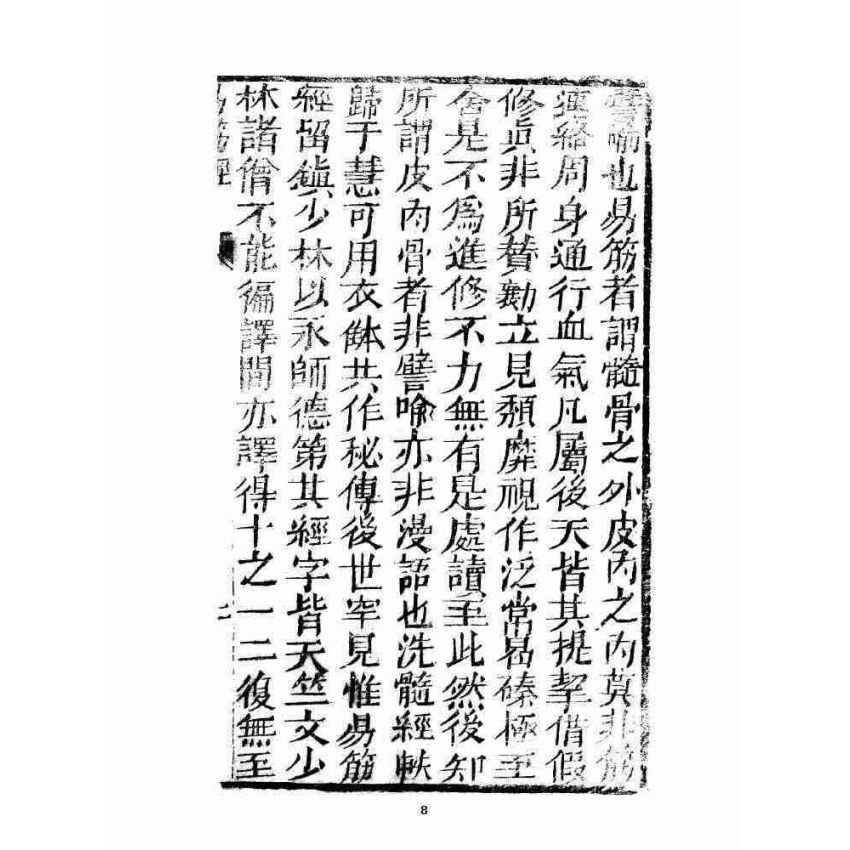 譬喻也易筋者謂髓骨之外皮肉之内莫非筋
連絡周身通行血氣凡屬後天皆其提挈借假
修眞非所贊勷立見頽靡視作泛常曷臻極至
舍是不爲進修不力無有是處讀至此然後知
所謂皮肉骨者非譬喻亦非漫語也洗髓經帙
歸于慧可用衣鉢共作秘傳後世罕見惟易筋
經留鎮少林以永師德第其經字皆天竺文少
林諸僧不能徧譯間亦譯得十之一二復無至
易筋經
8